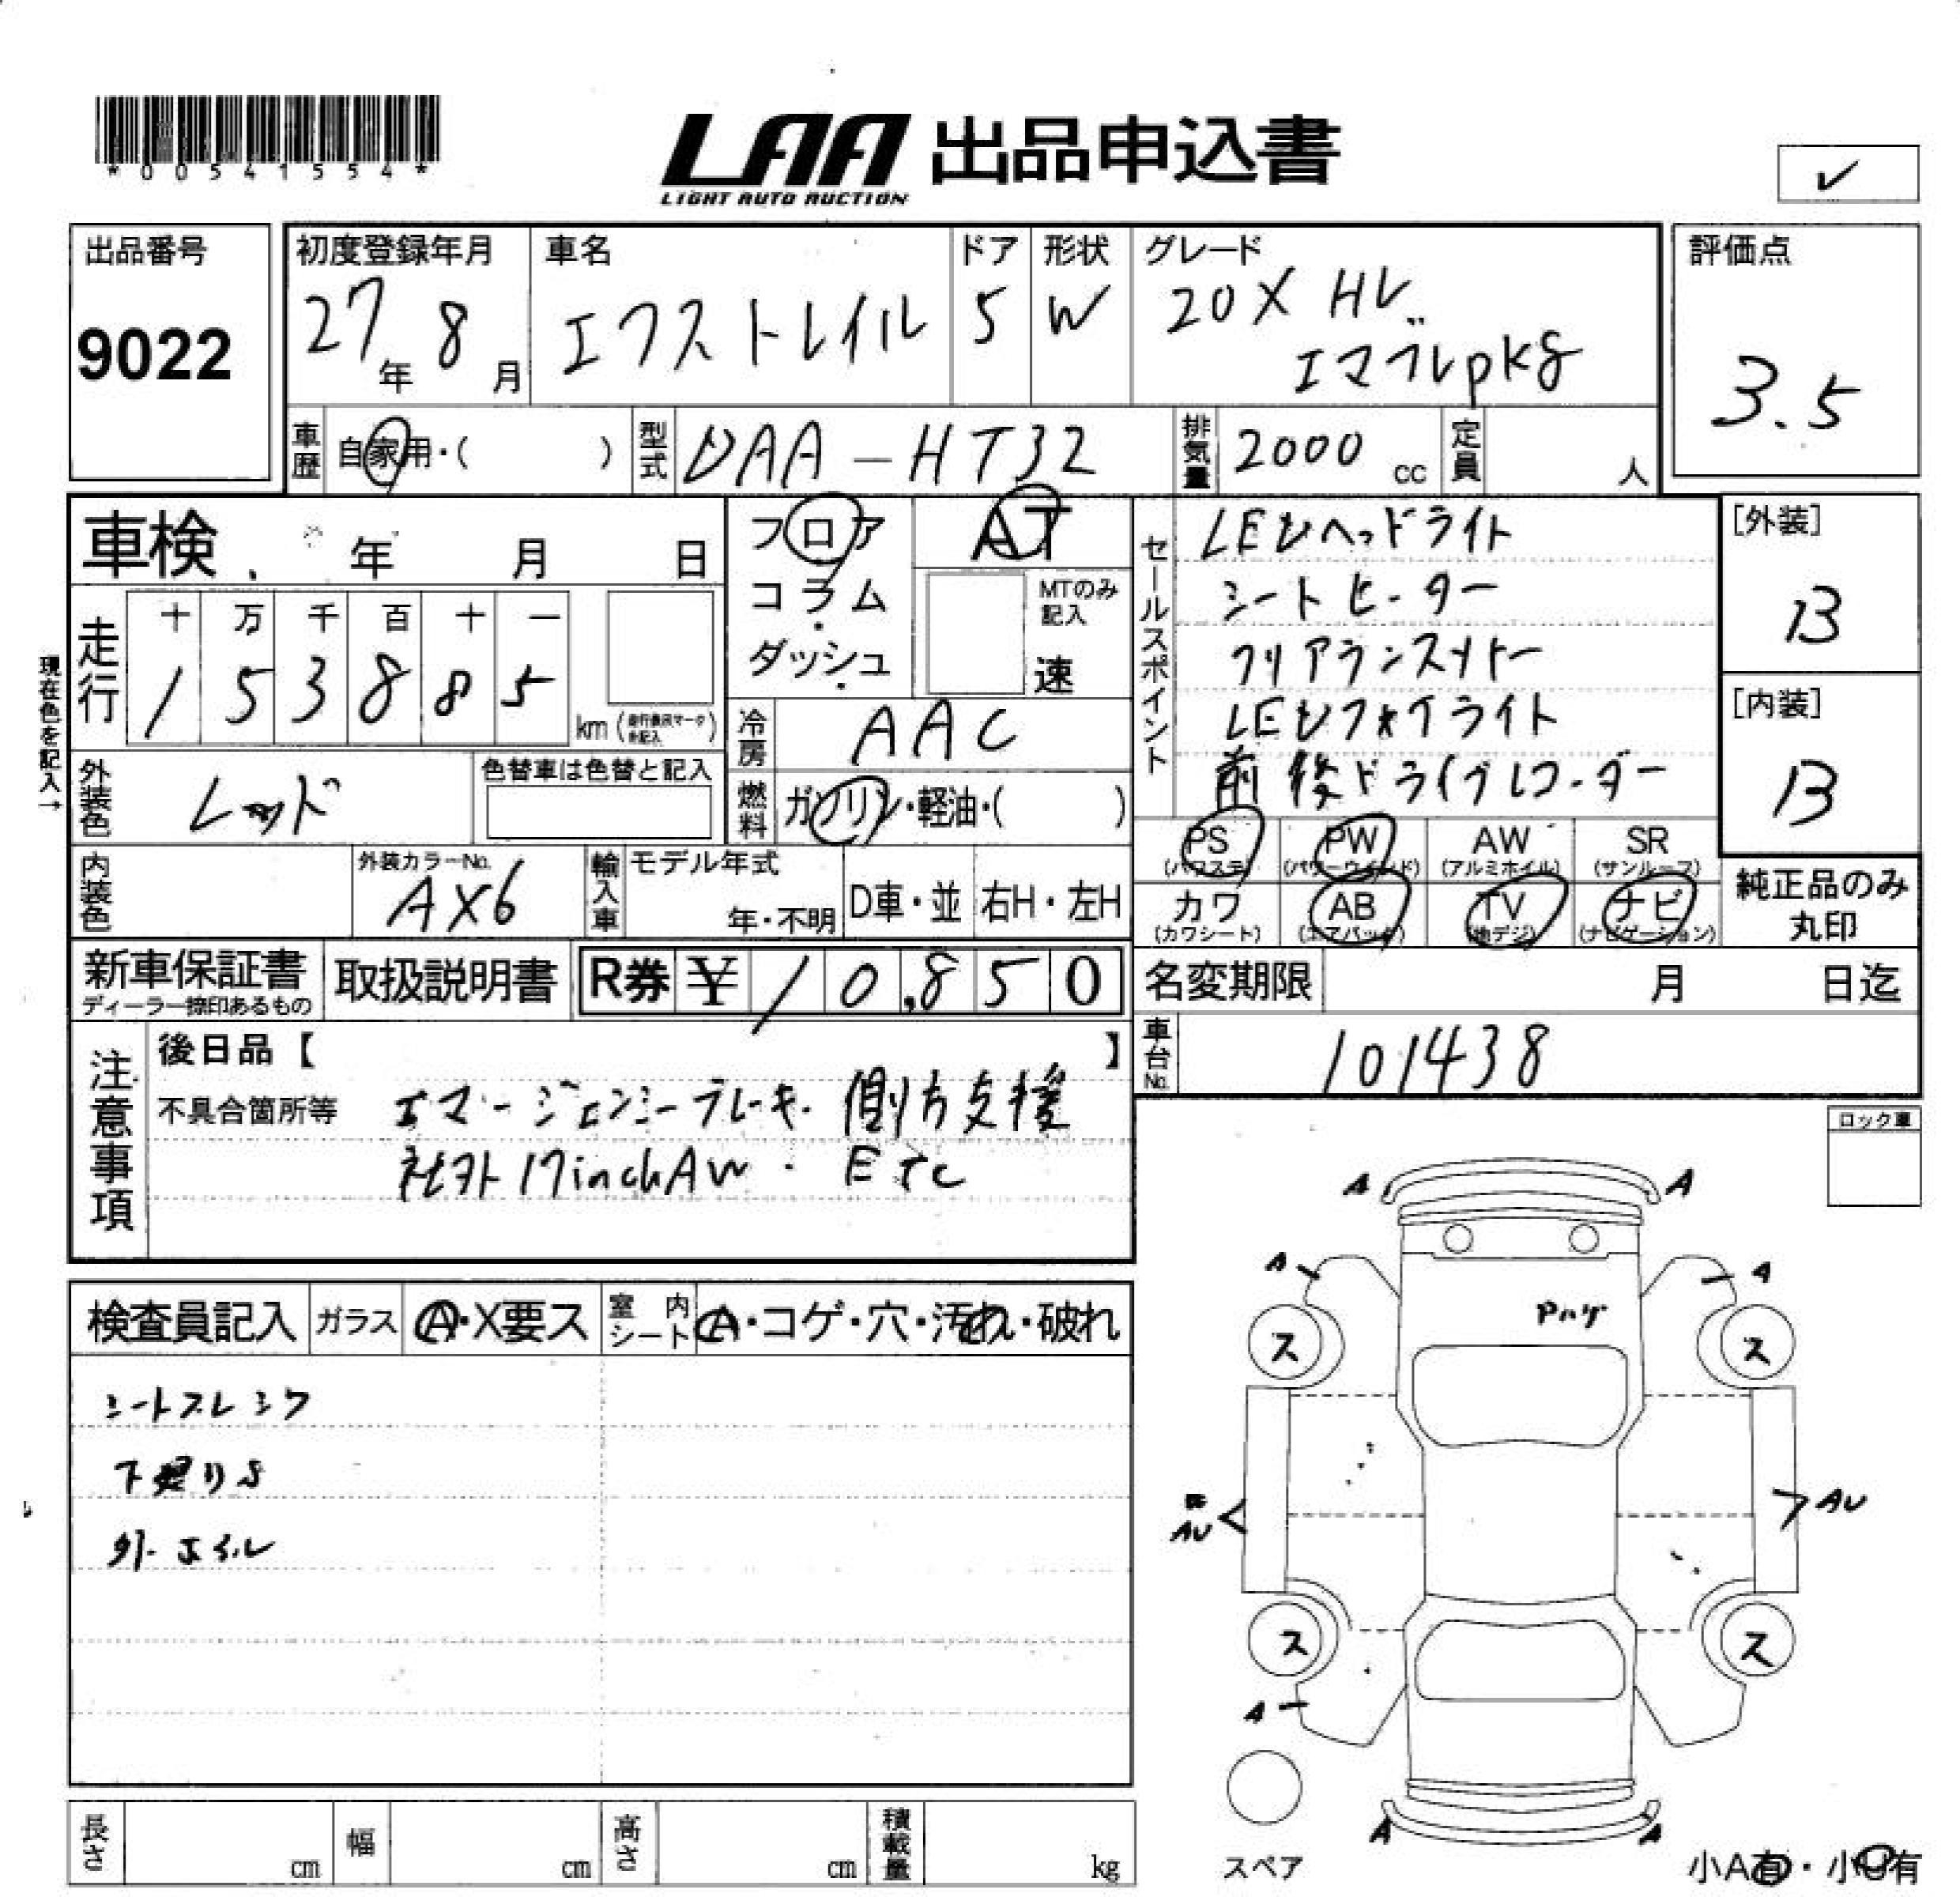 *00541554*
LAA 出品申込書
LIGHT AUTO AUCTION
✓
出品番号
9022
初度登録年月
27年 8月
車名
エクストレイル
ドア
5
形状
W
グレード
20X HV
エマブレpkg
評価点
3.5
車歴 自家用・( )
型式 DAA-HT32
排気量 2000 cc
定員 人
車検 年 月 日
フロア
コラム
ダッシュ
AT
MTのみ記入
速
セールスポイント
LEDヘッドライト
シートヒーター
クリアランスソナー
LEDフォグライト
前後ドライブレコーダー
[外装]
B
[内装]
B
現在色を記入→
走行
十 万 千 百 十 一
1 5 3 8 8 5 km (走行換算マーク未記入)
冷房 AAC
外装色 レッド
色替車は色替と記入
燃料 ガソリン・軽油・( )
PS (パワステ) PW (パワーウインド) AW (アルミホイル) SR (サンルーフ)
カワ (カワシート) AB (エアバック) TV (地デジ) ナビ (ナビゲーション)
純正品のみ丸印
内装色
外装カラーNo. AX6
輸入車 モデル年式 年・不明 D車・並 右H・左H
新車保証書
ディーラー捺印あるもの
取扱説明書
R券 ¥ 10,850
名変期限 月 日迄
車台No. 101438
注意事項
後日品【 】
不具合箇所等 エマージェンシーブレーキ・側方支援
社外17inchAW・ETC
ロック車
検査員記入 ガラス A・X要ス 室内シート A・コゲ・穴・汚れ・破れ
シートスレシワ
下廻りS
外ホイル
A A
A A
Pハゲ
ス ス
AU AU
ス ス
A
A A
スペア
小A有・小U有
長さ cm 幅 cm 高さ cm 積載量 kg